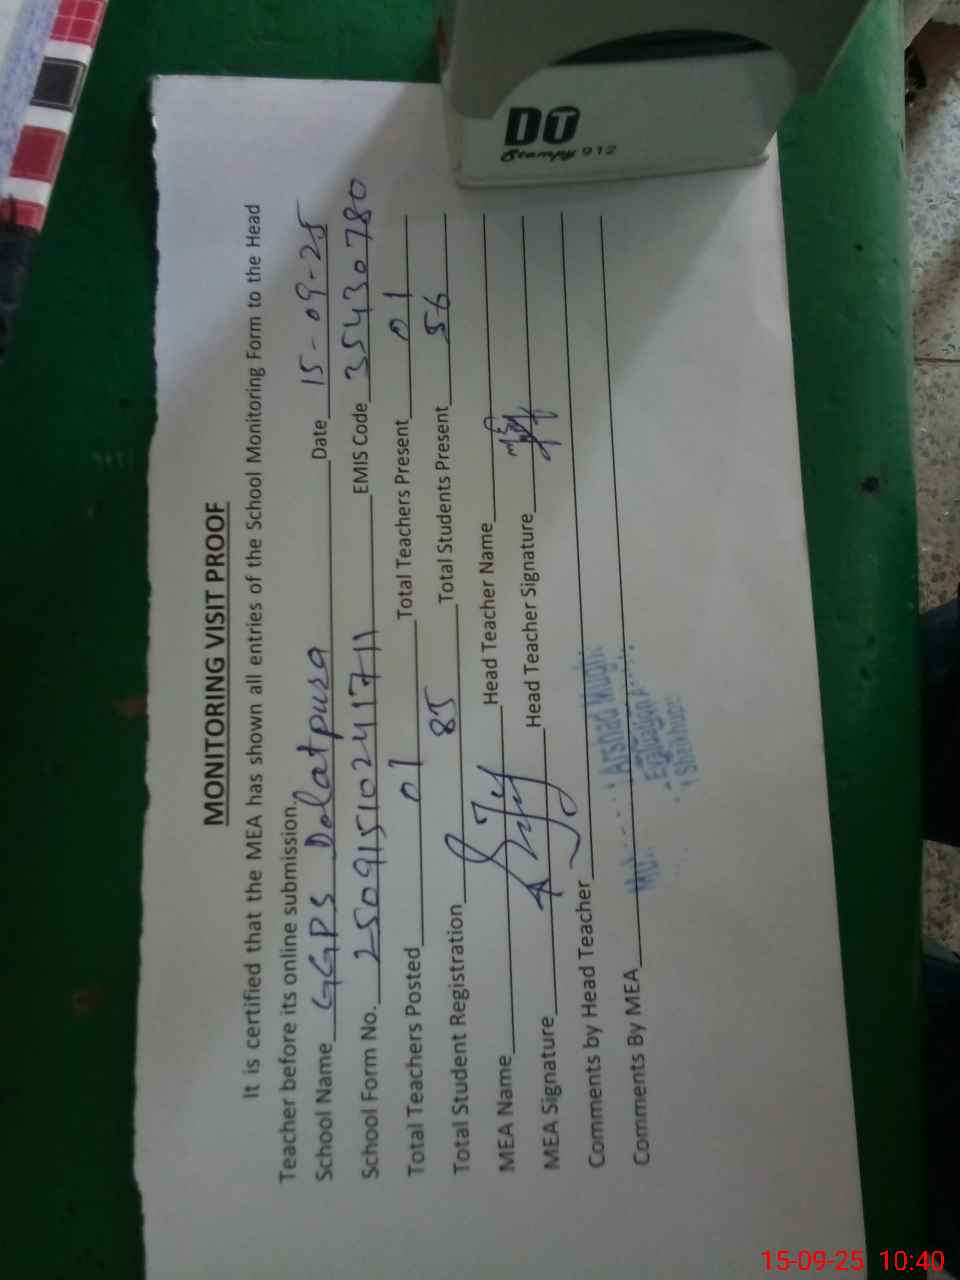 MONITORING VISIT PROOF
It is certified that the MEA has shown all entries of the School Monitoring Form to the Head
Teacher before its online submission.
School Name GGPS Dolatpura Date 15-09-25
School Form No. 2509151024171 1 EMIS Code 35430780
Total Teachers Posted 01 Total Teachers Present 01
Total Student Registration 85 Total Students Present 56
MEA Name Head Teacher Name
MEA Signature Head Teacher Signature
Comments by Head Teacher
Comments By MEA
Arshad
Evaluation
DT
Stampy 912
15-09-25 10:40